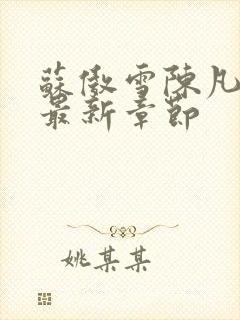 蘇傲雪陳凡
最新章節
姚某某